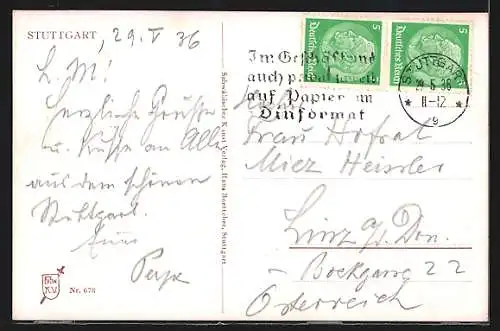 STUTTGART, 29. V 36
L. M!
Herzliche Grüsse
u. Küsse an Alle
aus dem schönen
Stuttgart.
Nr. 678
Schwäbischer Kunst-Verlag, Hans Boettcher, Stuttgart
5
Deutsches Reich
5
Deutsches Reich
Im Geschäft und
auch privat
auf Papier im
Dinformat
STUTTGART
5.36
11-12
9
Frau Hofrat
Miez Heissler
Linz a/d. Don.
Bockgasse 22
Österreich